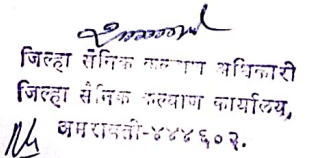 जिल्हा सैनिक कल्याण अधिकारी
जिल्हा सैनिक कल्याण कार्यालय,
अमरावती-४४४६०२.